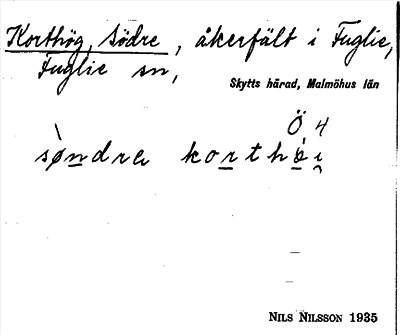 Korthög, Södre, åkerfält i Fuglie,
Fuglie sn,
Skytts härad, Malmöhus län
Ö 4
sø̀ndrɐ korthòi̯
NILS NILSSON 1935